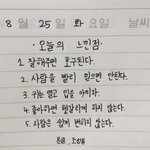 8 월 25 일 화 요일 날씨
오늘의 느낀점
1 잘해주면 호구된다.
2. 사람을 빨리 믿으면 안된다.
3. 귀는 열고 입은 아끼자.
4. 좋아하면 헷갈리게 하지 않는다.
5. 사람은 쉽게 변하지 않는다.